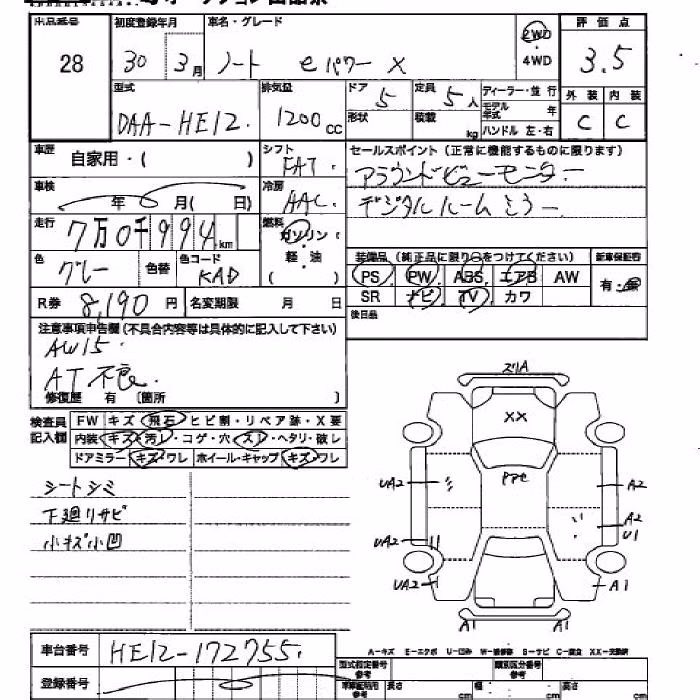 出品番号 初度登録年月 車名・グレード 2WD 評価点
28 30年 3月 ノート eパワー X ・ 3.5
4WD
型式 排気量 ドア 定員 ディーラー・並行 外装 内装
DAA-HE12. 1200cc 5 5人 モデル年式 年 C C
形状 積載 kg ハンドル 左・右
車歴 自家用・( ) シフト FAT. セールスポイント(正常に機能するものに限ります)
車検 年 月( 日) 冷房 AAC アラウンドビューモニター
走行 7万0千994km 燃料 ガソリン デジタルルームミラー
軽・油
色 グレー 色替 色コード KAD ( ) 装備品(純正品に限り○をつけてください) 新車保証書
PS PW ABS エアB AW 有・無
R券 8,190円 名変期限 月 日 SR ナビ TV カワ
後日品
注意事項申告欄(不具合内容等は具体的に記入して下さい)
AW15.
AT不良.
修復歴 有 〔箇所 〕
検査員記入欄 FW キズ・飛石・ヒビ割・リペア跡・X要
内装・キズ・汚レ・コゲ・穴・スレ・ヘタリ・破レ
ドアミラー キズ・ワレ ホイール・キャップ キズ・ワレ
シートシミ
下廻リサビ
小キズ小凹
ズリA
XX
PPC
UA2 A2
UA2 A2
U1
UA2 A1
A1 A1
A-キズ E-エクボ U-凹み W-補修跡 S-サビ C-腐食 XX-交換済
車台番号 HE12-172755.
型式指定番号 類別区分番号
登録番号 参考 長さ cm 幅 cm 高さ cm